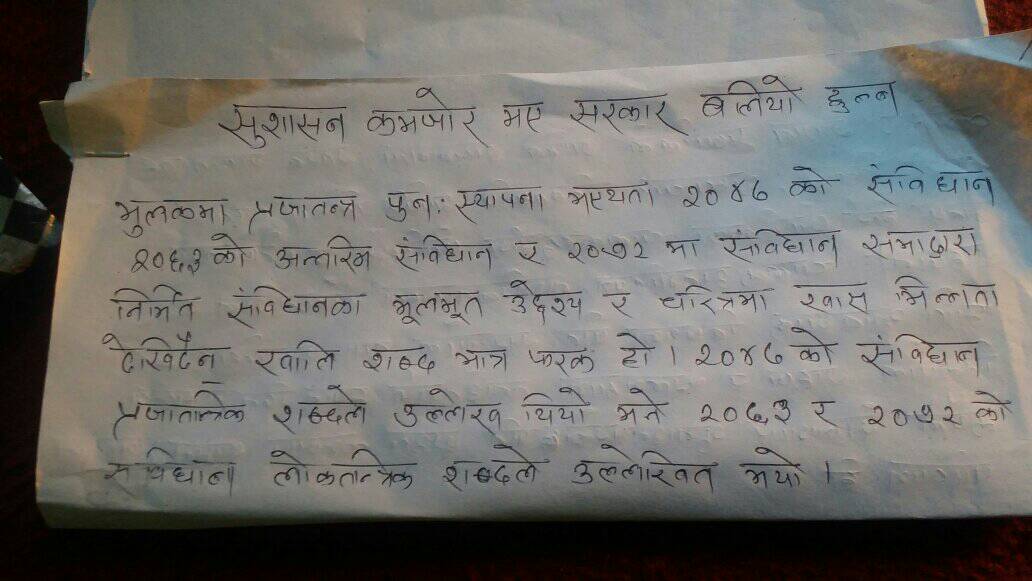 सुशासन कमजोर भए सरकार बलियो हुन्न
मुलुकमा प्रजातन्त्र पुन: स्थापना भएयता २०४७ को संविधान
२०६३ को अन्तरिम संविधान र २०७२ मा संविधान सभाद्वारा
निर्मित संविधानका मूलभूत उद्देश्य र चरित्रमा खास भिन्नता
देखिदैन खालि शब्द मात्र फरक हो । २०४७ को संविधान
प्रजातान्त्रिक शब्दले उल्लेख थियो भने २०६३ र २०७२ को
संविधान लोकतान्त्रिक शब्दले उल्लेखित भयो ।